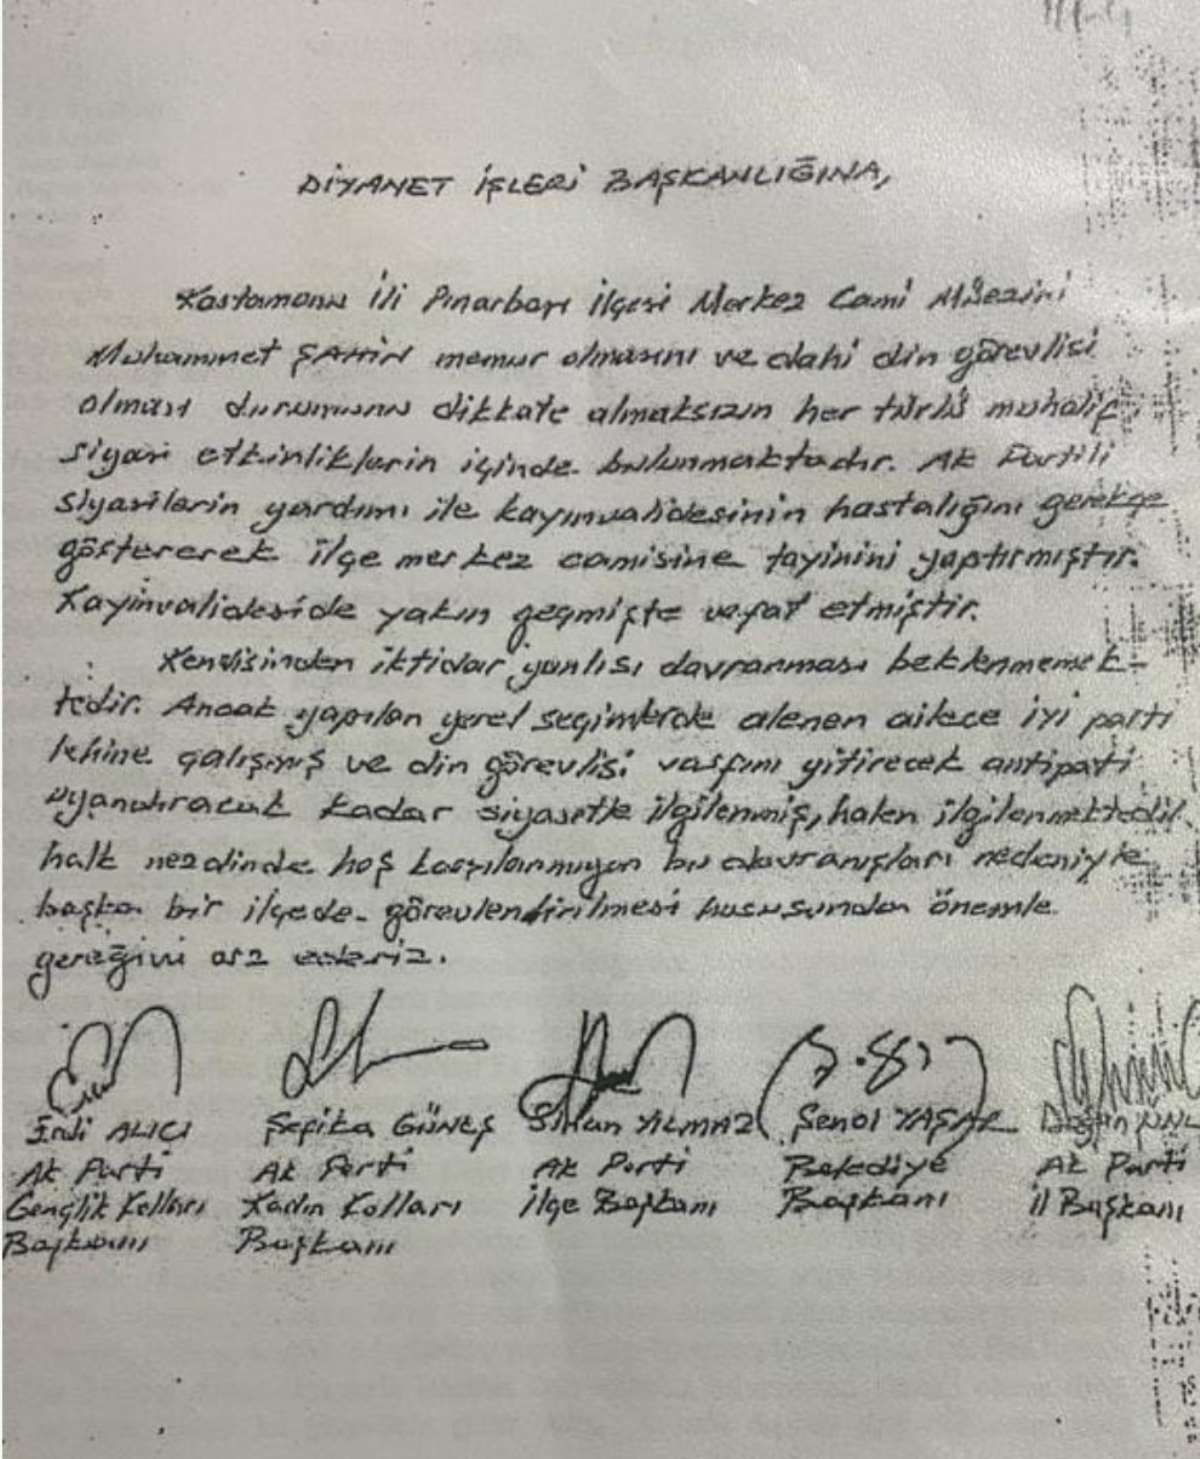 DİYANET İŞLERİ BAŞKANLIĞINA,
Kastamonu İli Pınarbaşı İlçesi Merkez Cami Müezini
Muhammet ŞAHİN memur olmasını ve dahi din görevlisi
olması durumunu dikkate almaksızın her türlü muhalif
siyasi etkinliklerin içinde bulunmaktadır. AK Partili
siyasilerin yardımı ile kayınvalidesinin hastalığını gerekçe
göstererek ilçe merkez camisine tayinini yaptırmıştır.
Kayınvalideside yakın geçmişte vefat etmiştir.
Kendisinden iktidar yanlısı davranması beklenmemek-
tedir. Ancak yapılan yerel seçimlerde alenen ailece iyi parti
lehine çalışmış ve din görevlisi vasfını yitirecek antipati
uyandıracak kadar siyasetle ilgilenmiş, halen ilgilenmektedir.
halk nezdinde hoş karşılanmayan bu davranışları nedeniyle
başka bir ilçede görevlendirilmesi hususundan önemle
gereğini arz ederiz.
Erdi ALICI Şefika GÜNEŞ Sinan YILMAZ Şenol YAŞAR Doğan
AK Parti AK Parti AK Parti Belediye AK Parti
Gençlik Kolları Kadın Kolları İlçe Başkanı Başkanı İl Başkanı
Başkanı Başkanı